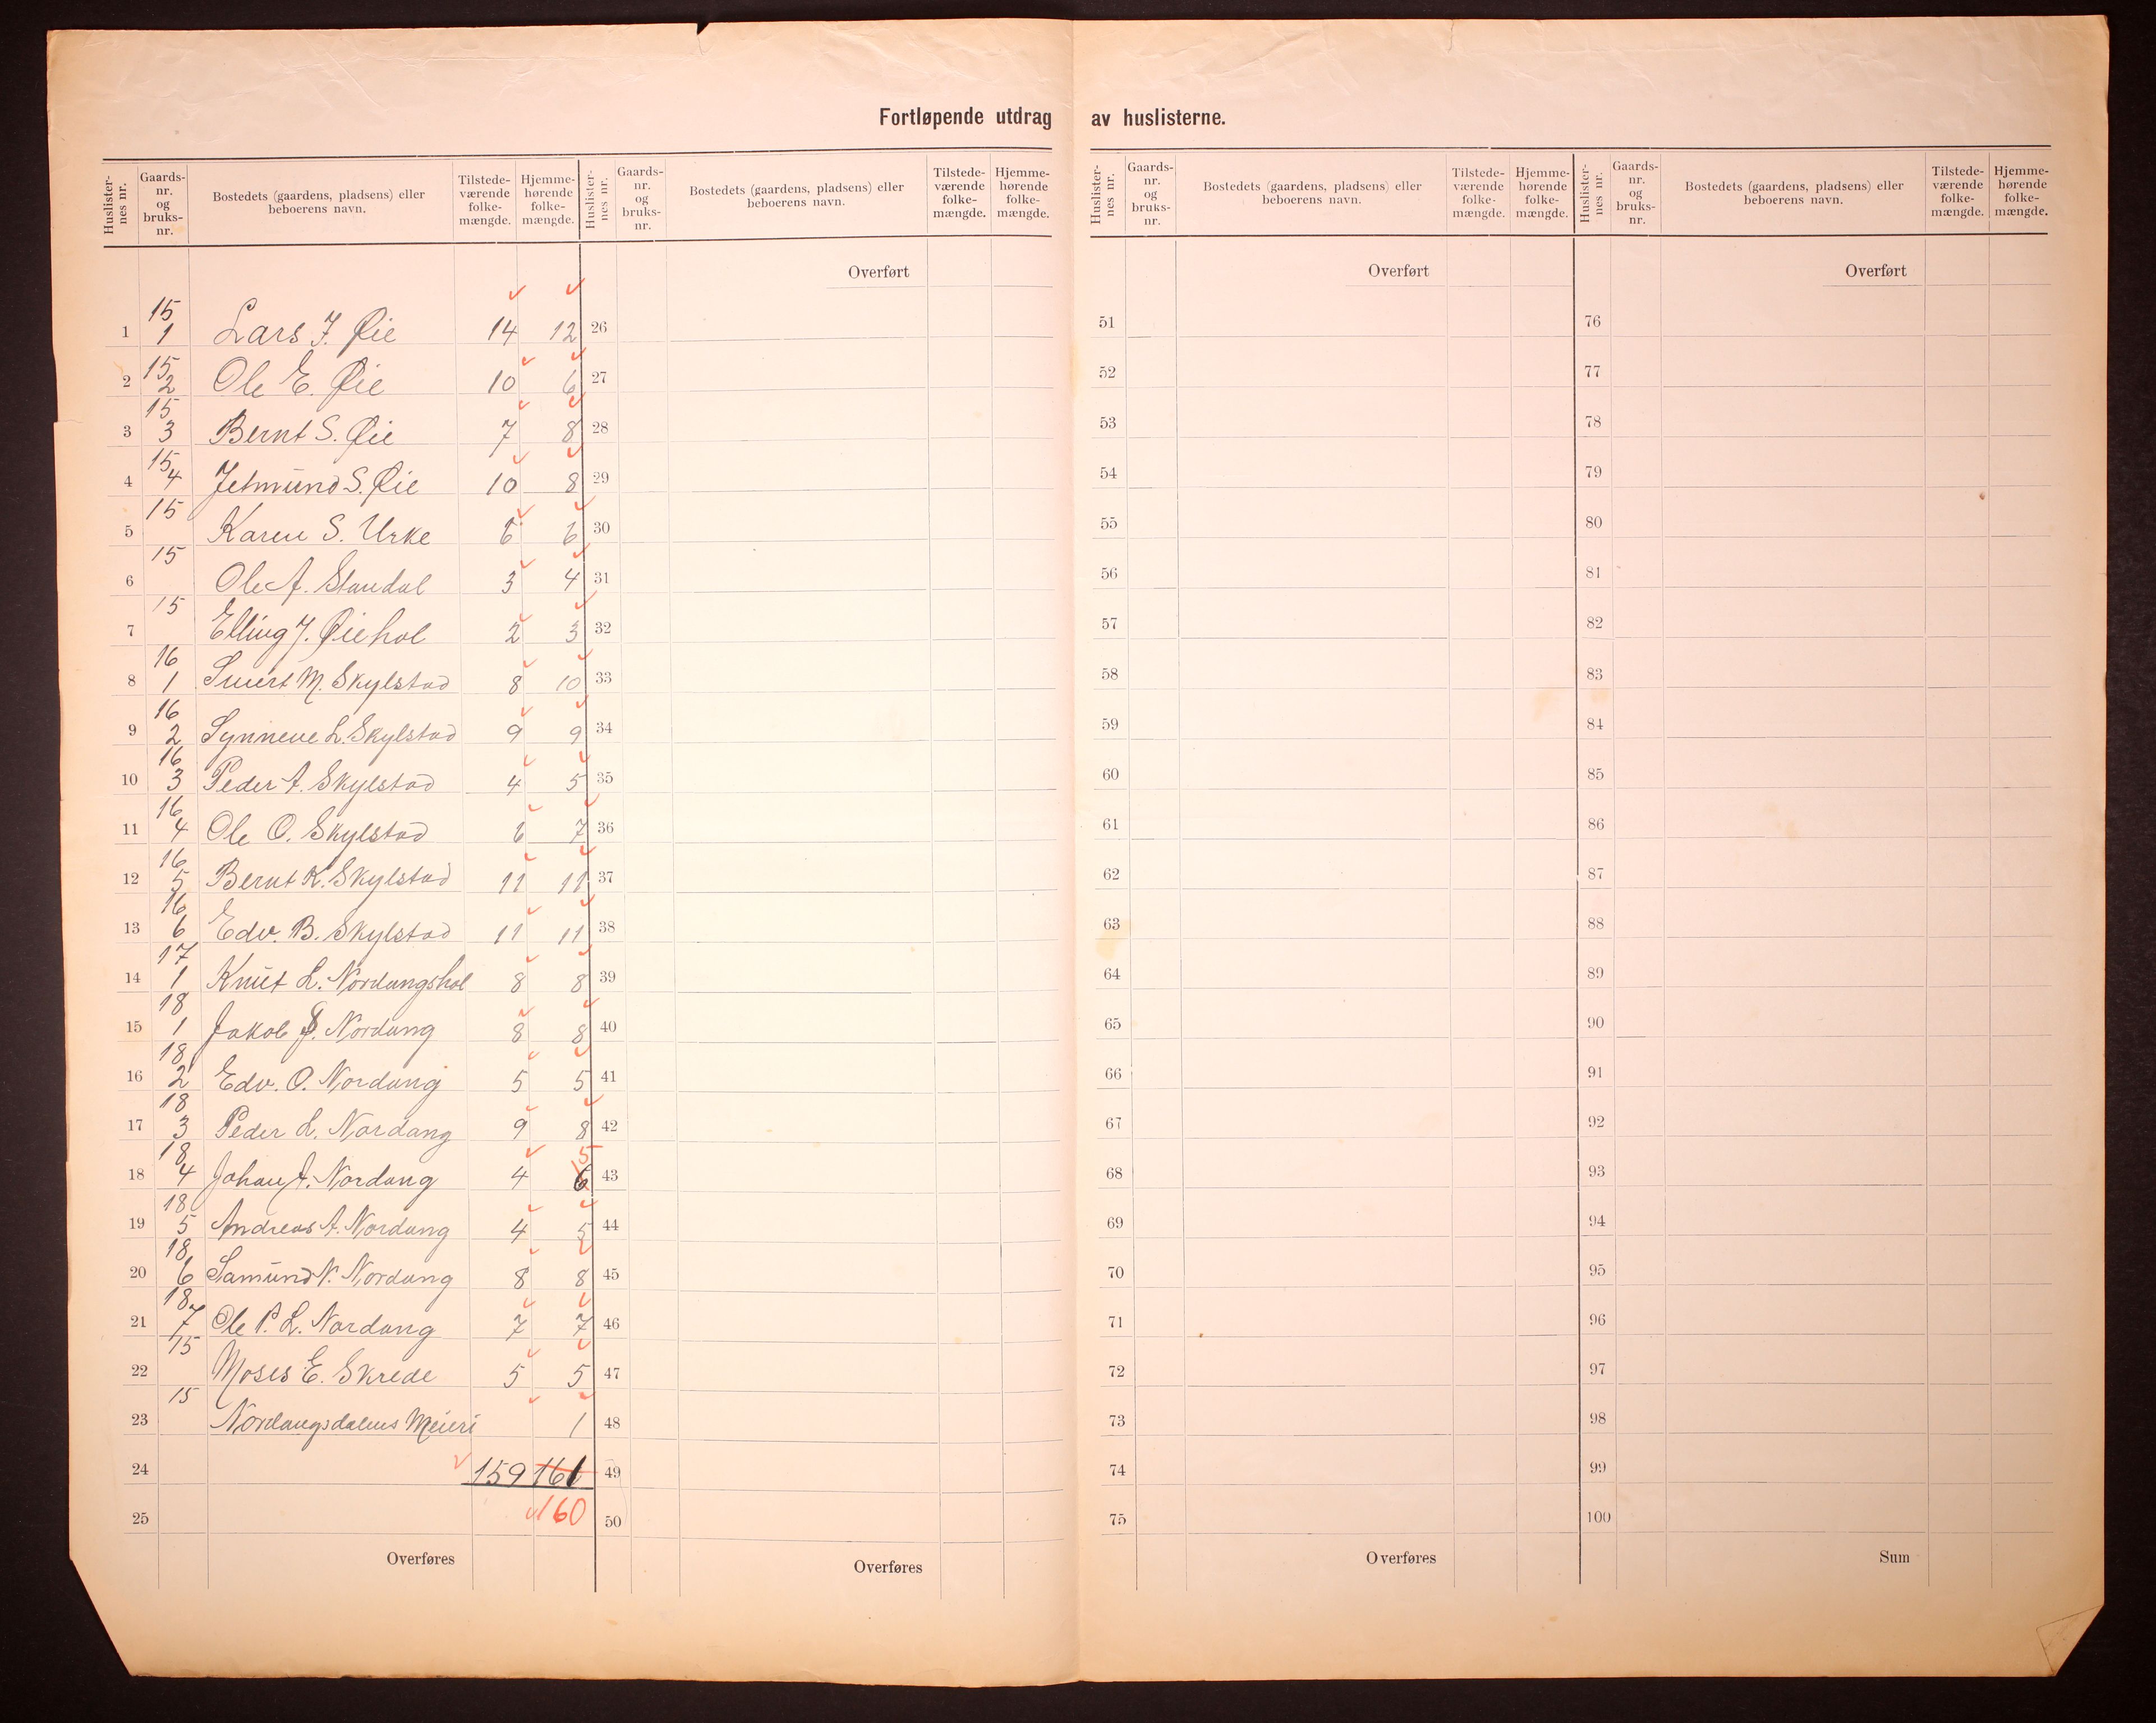 Fortløpende utdrag av huslisterne.
Huslisternes nr. Gaards-nr. og bruks-nr. Bostedets (gaardens, pladsens) eller beboerens navn. Tilstede-værende folke-mængde. Hjemme-hørende folke-mængde.
Huslisternes nr. Gaards-nr. og bruks-nr. Bostedets (gaardens, pladsens) eller beboerens navn. Tilstede-værende folke-mængde. Hjemme-hørende folke-mængde.
Huslisternes nr. Gaards-nr. og bruks-nr. Bostedets (gaardens, pladsens) eller beboerens navn. Tilstede-værende folke-mængde. Hjemme-hørende folke-mængde.
Huslisternes nr. Gaards-nr. og bruks-nr. Bostedets (gaardens, pladsens) eller beboerens navn. Tilstede-værende folke-mængde. Hjemme-hørende folke-mængde.
1 15 1 Lars J. Øie 14 12
2 15 2 Ole E. Øie 10 6
3 15 3 Bernt S. Øie 7 8
4 15 4 Jetmund S. Øie 10 8
5 15 Karen S. Urke 6 6
6 15 Ole A. Standal 3 4
7 15 Elling J. Øiehol 2 3
8 16 1 Sivert M. Skylstad 8 10
9 16 2 Synneve L. Skylstad 9 9
10 16 3 Peder A. Skylstad 4 5
11 16 4 Ole O. Skylstad 6 7
12 16 5 Bernt K. Skylstad 11 11
13 16 6 Edv. B. Skylstad 11 11
14 17 1 Knut L. Nordangshol 8 8
15 18 1 Jakob Nordang 8 8
16 18 2 Edv. O. Nordang 5 5
17 18 3 Peder L. Nordang 9 8
18 18 4 Johan J. Nordang 4 6 5
19 18 5 Andreas A. Nordang 4 5
20 18 6 Samund N. Nordang 8 8
21 18 7 Ole P. L. Nordang 7 7
22 15 Moses E. Skrede 5 5
23 15 Nordangsdalens Meieri 1
24 159 161
25 160
Overføres
Overført
26
27
28
29
30
31
32
33
34
35
36
37
38
39
40
41
42
43
44
45
46
47
48
49
50
Overføres
Overført
51
52
53
54
55
56
57
58
59
60
61
62
63
64
65
66
67
68
69
70
71
72
73
74
75
Overføres
Overført
76
77
78
79
80
81
82
83
84
85
86
87
88
89
90
91
92
93
94
95
96
97
98
99
100
Sum